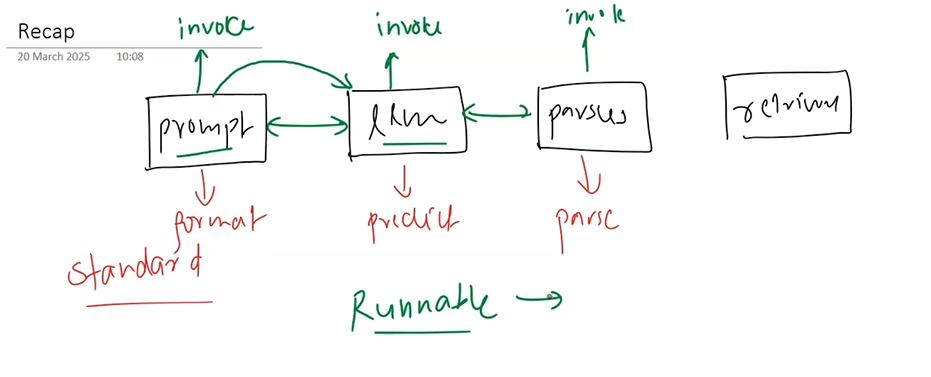 Recap
20 March 2025 10:08
invoke invoke invoke
prompt llm parses retriever
format predict parse
Standard
Runnable